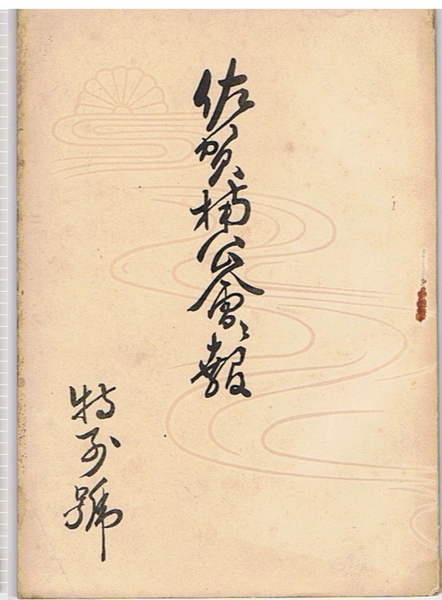 佐賀楠公會報
特別號